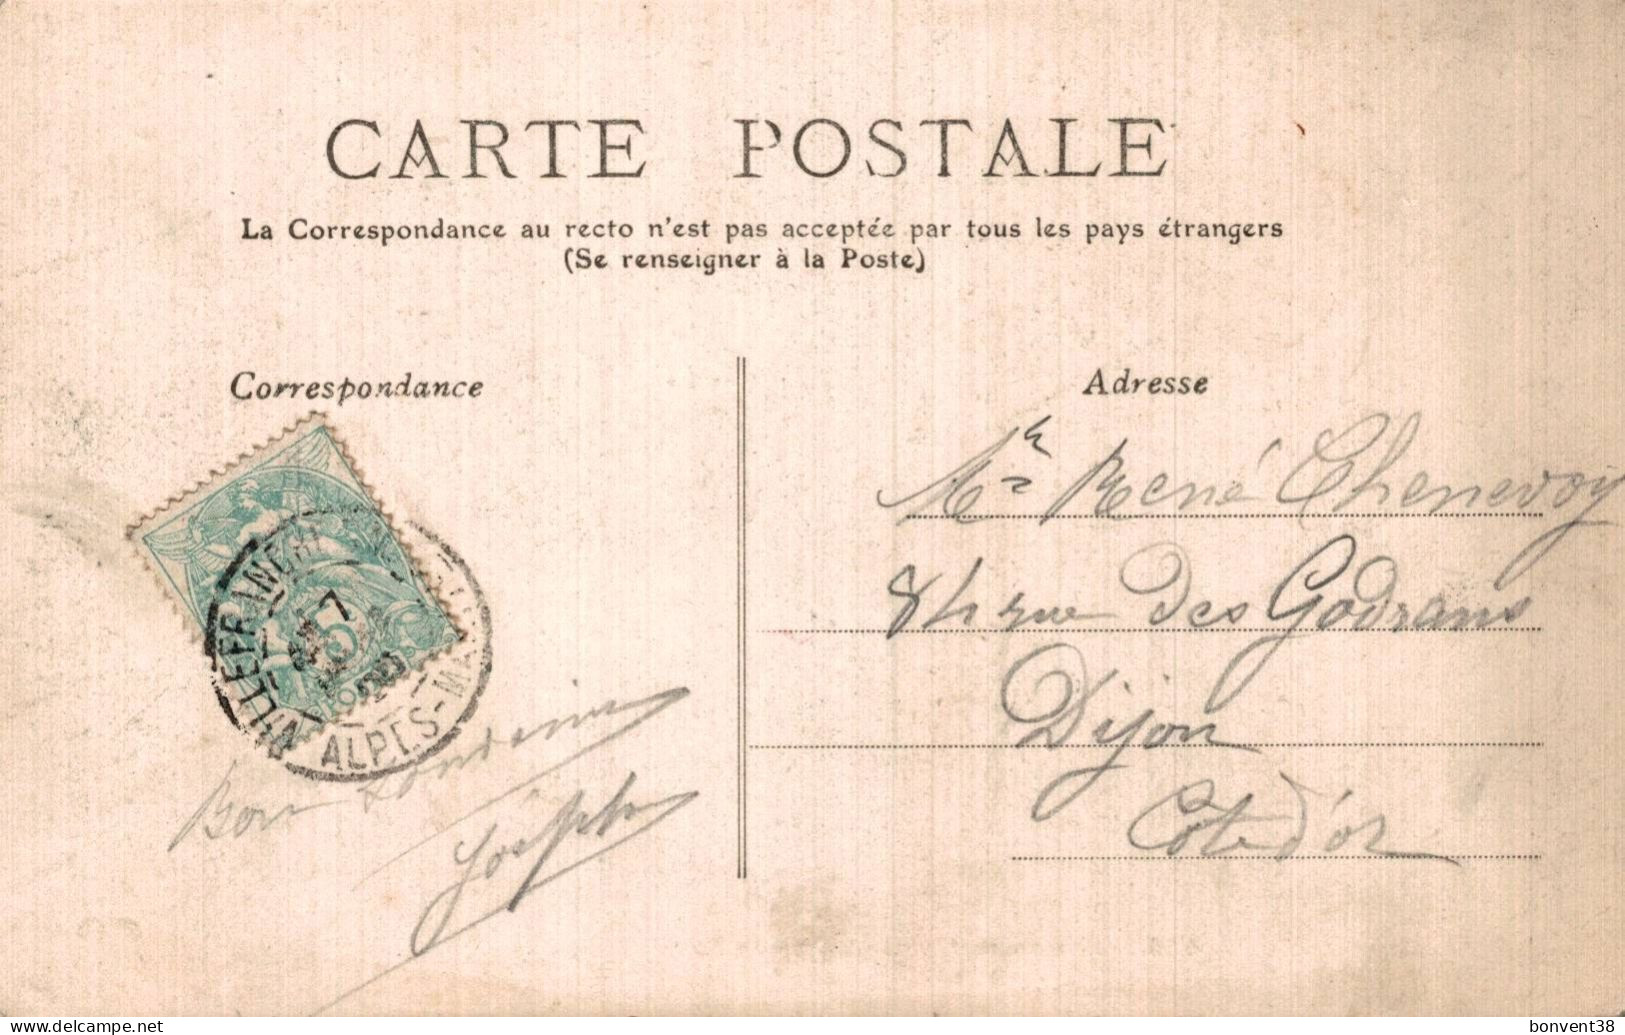 CARTE POSTALE
La Correspondance au recto n'est pas acceptée par tous les pays étrangers
(Se renseigner à la Poste)
Correspondance
Adresse
Mr René Chenevoy
84 rue des Godrans
Dijon
Côte d'or
VILLEFRANCHE
7
5
ALPES-MA
Bon
Joseph
www.delcampe.net
bonvent38